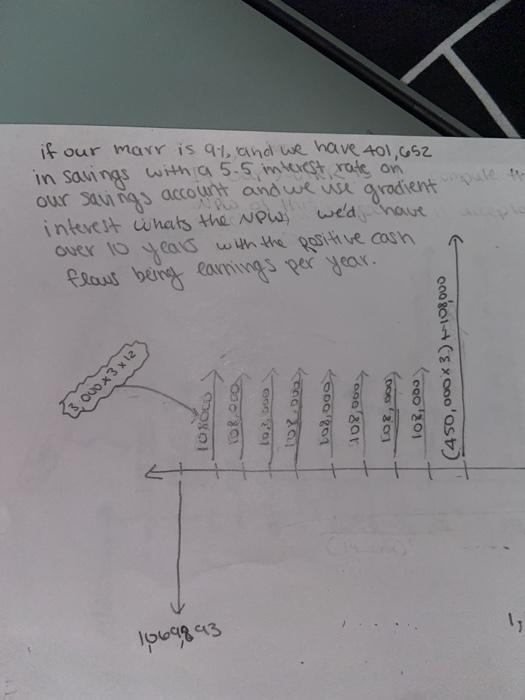 if our marr is 9%, and we have 401,652
in savings with a 5.5 interest rate on
our savings account and we use gradient
interest whats the NPW, we'd have
over 10 years with the positive cash
flows being earnings per year.
3,000 x 3 x 12
108000
108,000
108,000
108,000
108,000
108,000
108,000
108,000
(450,000 x 3) + 108,000
1,069,893
1,